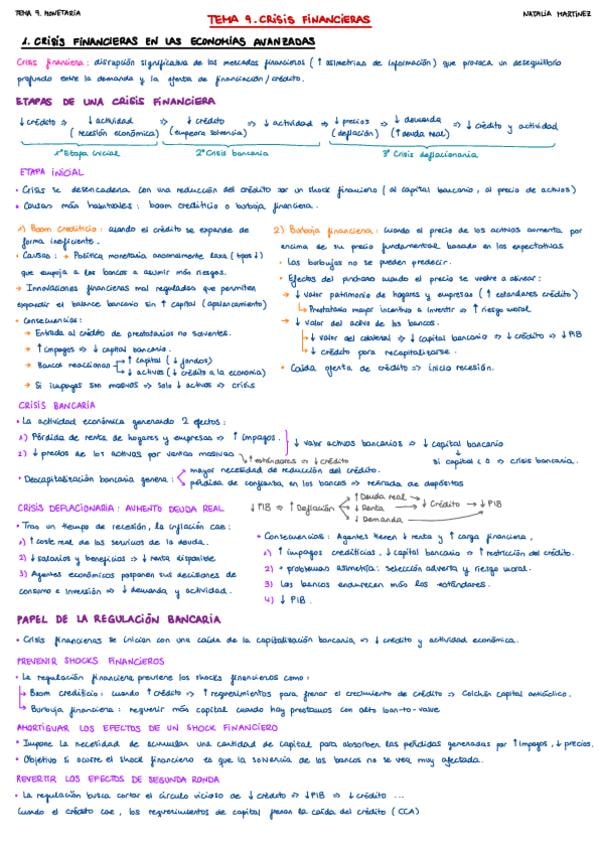 TEMA 9. MONETARIA
TEMA 9. CRISIS FINANCIERAS
NATALIA MARTÍNEZ
1. CRISIS FINANCIERAS EN LAS ECONOMÍAS AVANZADAS
Crisis financiera: disrupción significativa de los mercados financieros (↑ asimetrías de información) que provoca un desequilibrio
profundo entre la demanda y la oferta de financiación/crédito.
ETAPAS DE UNA CRISIS FINANCIERA
↓ crédito ⇒ ↓ actividad (recesión económica) ⇒ ↓ crédito (empeora solvencia) ⇒ ↓ actividad ⇒ ↓ precios (deflación) ⇒ ↓ demanda (↑ deuda real) ⇒ ↓ crédito y actividad
1ª Etapa inicial
2ª Crisis bancaria
3ª Crisis deflacionaria
ETAPA INICIAL
• Crisis se desencadena con una reducción del crédito por un shock financiero (al capital bancario, al precio de activos)
• Causas más habituales: boom crediticio o burbuja financiera.
1) Boom crediticio: cuando el crédito se expande de
forma ineficiente.
• Causas: → Política monetaria anormalmente laxa (tipos ↓)
que empuja a los bancos a asumir más riesgos.
→ Innovaciones financieras mal reguladas que permiten
expandir el balance bancario sin ↑ capital (apalancamiento)
• Consecuencias:
→ Entrada al crédito de prestatarios no solventes.
→ ↑ impagos ⇒ ↓ capital bancario.
→ Bancos reaccionan
→ ↑ capital (↓ fondos)
→ ↓ activos (↓ crédito a la economía)
→ Si impagos son masivos ⇒ solo ↓ activos ⇒ crisis
2) Burbuja financiera: cuando el precio de los activos aumenta por
encima de su precio fundamental basado en las expectativas
• Las burbujas no se pueden predecir.
• Efectos del pinchazo cuando el precio se vuelve a alinear:
→ ↓ Valor patrimonio de hogares y empresas (↑ estándares crédito)
↳ Prestatario mayor incentivo a invertir ⇒ ↑ riesgo moral
→ ↓ Valor del activo de los bancos.
→ ↓ valor del colateral ⇒ ↓ capital bancario ⇒ ↓ crédito ⇒ ↓ PIB
→ ↓ crédito para recapitalizarse.
• Caída oferta de crédito ⇒ inicio recesión.
CRISIS BANCARIA
• La actividad económica generando 2 efectos:
1) Pérdida de renta de hogares y empresas ⇒ ↑ impagos.
2) ↓ precios de los activos por ventas masivas
↓ valor activos bancarios ⇒ ↓ capital bancario
↑ estándares ⇒ ↓ crédito
si capital < 0 ⇒ crisis bancaria.
• Descapitalización bancaria genera:
mayor necesidad de reducción del crédito.
pérdida de confianza en los bancos ⇒ retirada de depósitos
CRISIS DEFLACIONARIA: AUMENTO DEUDA REAL
↓ PIB ⇒ ↑ Deflación
↑ Deuda real
↓ Renta
↓ Demanda
→ ↓ Crédito → ↓ PIB
• Tras un tiempo de recesión, la inflación cae:
1) ↑ coste real de los servicios de la deuda.
2) ↓ salarios y beneficios ⇒ ↓ renta disponible
3) Agentes económicos posponen sus decisiones de
consumo e inversión ⇒ ↓ demanda y actividad.
• Consecuencias: Agentes tienen ↓ renta y ↑ carga financiera,
1) ↑ impagos crediticios, ↓ capital bancario ⇒ ↑ restricción del crédito.
2) + problemas asimetría: selección adversa y riesgo moral.
3) Los bancos endurecen más los estándares.
4) ↓ PIB.
PAPEL DE LA REGULACIÓN BANCARIA
• Crisis financieras se inician con una caída de la capitalización bancaria ⇒ ↓ crédito y actividad económica.
PREVENIR SHOCKS FINANCIEROS
• La regulación financiera previene los shocks financieros como:
→ Boom crediticio: cuando ↑ crédito ⇒ ↑ requerimientos para frenar el crecimiento de crédito ⇒ Colchón capital anticíclico.
↳ Burbuja financiera: requerir más capital cuando hay préstamos con alto loan-to-value
AMORTIGUAR LOS EFECTOS DE UN SHOCK FINANCIERO
• Impone la necesidad de acumular una cantidad de capital para absorber las pérdidas generadas por ↑ impagos, ↓ precios.
• Objetivo si ocurre el shock financiero es que la solvencia de los bancos no se vea muy afectada.
REVERTIR LOS EFECTOS DE SEGUNDA RONDA
• La regulación busca cortar el círculo vicioso de ↓ crédito ⇒ ↓ PIB ⇒ ↓ crédito ...
Cuando el crédito cae, los requerimientos de capital frenan la caída del crédito (CCA)